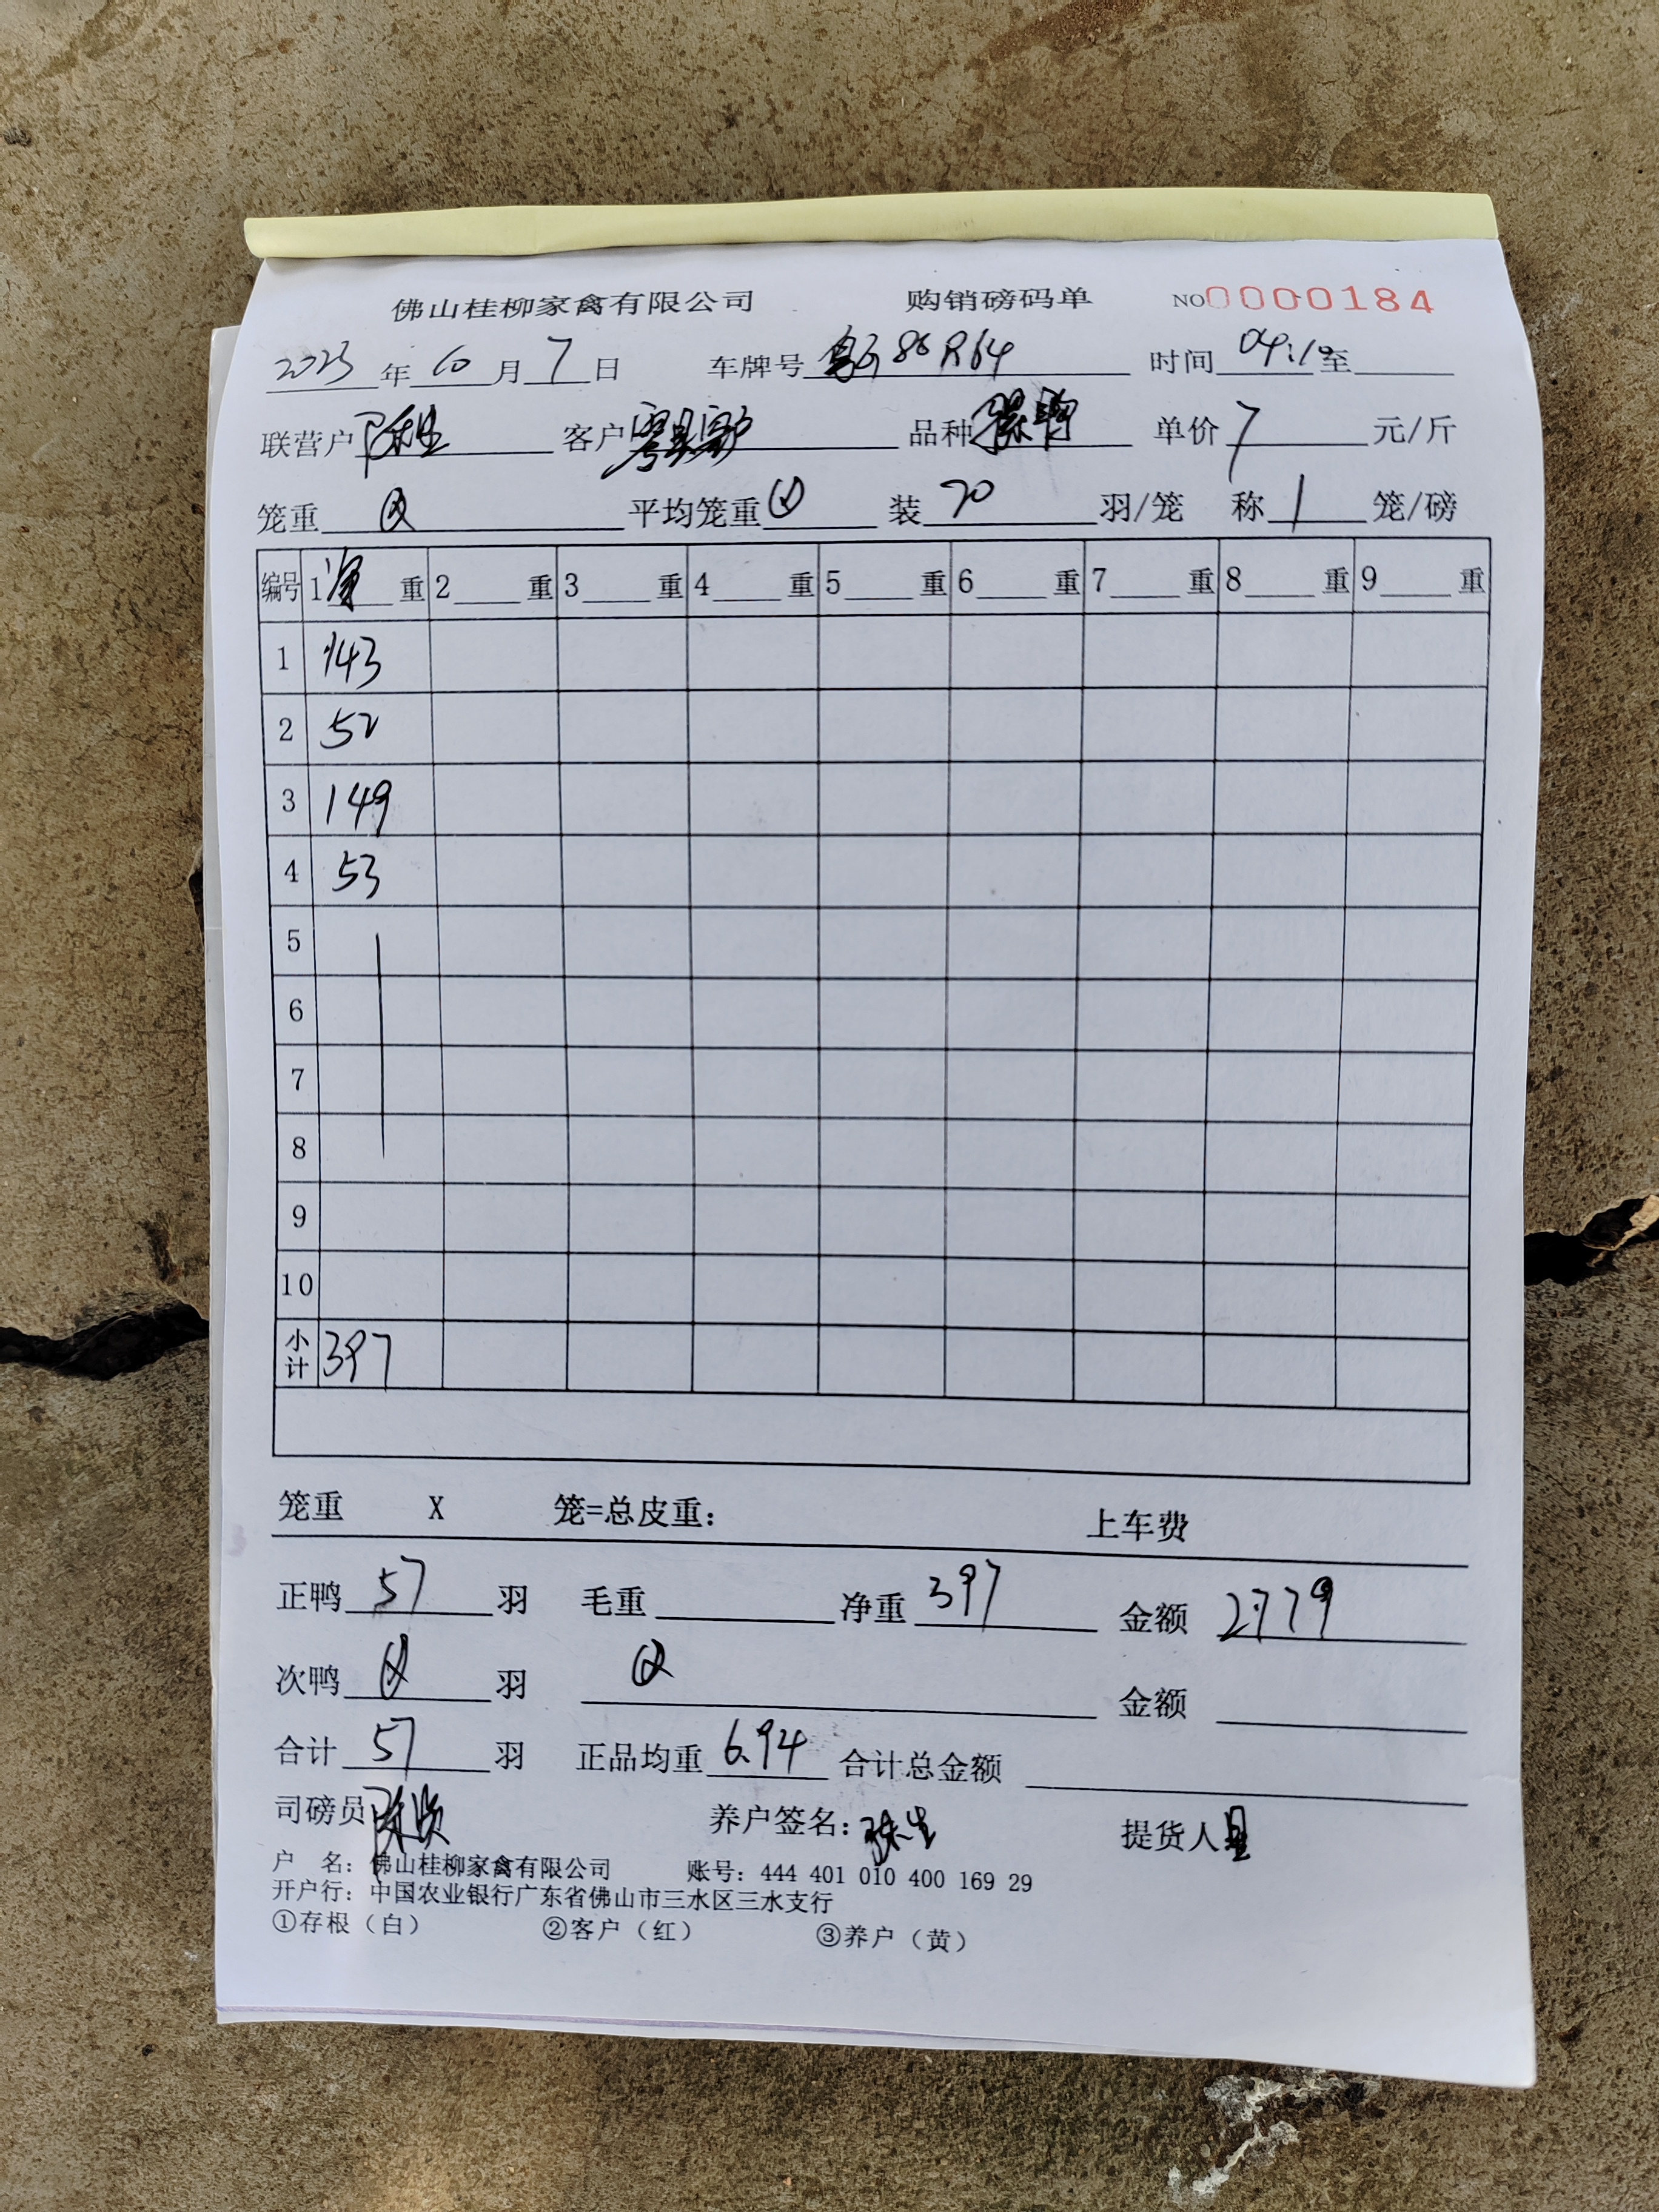 佛山桂柳家禽有限公司 购销磅码单 NO0000184
2023 年 10 月 7 日 车牌号 时间 04:10 至
联营户 客户 品种 单价 7 元/斤
笼重 平均笼重 装 20 羽/笼 称 1 笼/磅
编号 1 净 重 2 重 3 重 4 重 5 重 6 重 7 重 8 重 9 重
1 143
2 52
3 149
4 53
5
6
7
8
9
10
小计 397
笼重 X 笼=总皮重: 上车费
正鸭 57 羽 毛重 净重 397 金额 2779
次鸭 羽 金额
合计 57 羽 正品均重 6.94 合计总金额
司磅员 养户签名: 提货人
户 名: 佛山桂柳家禽有限公司 账号: 444 401 010 400 169 29
开户行: 中国农业银行广东省佛山市三水区三水支行
①存根（白） ②客户（红） ③养户（黄）